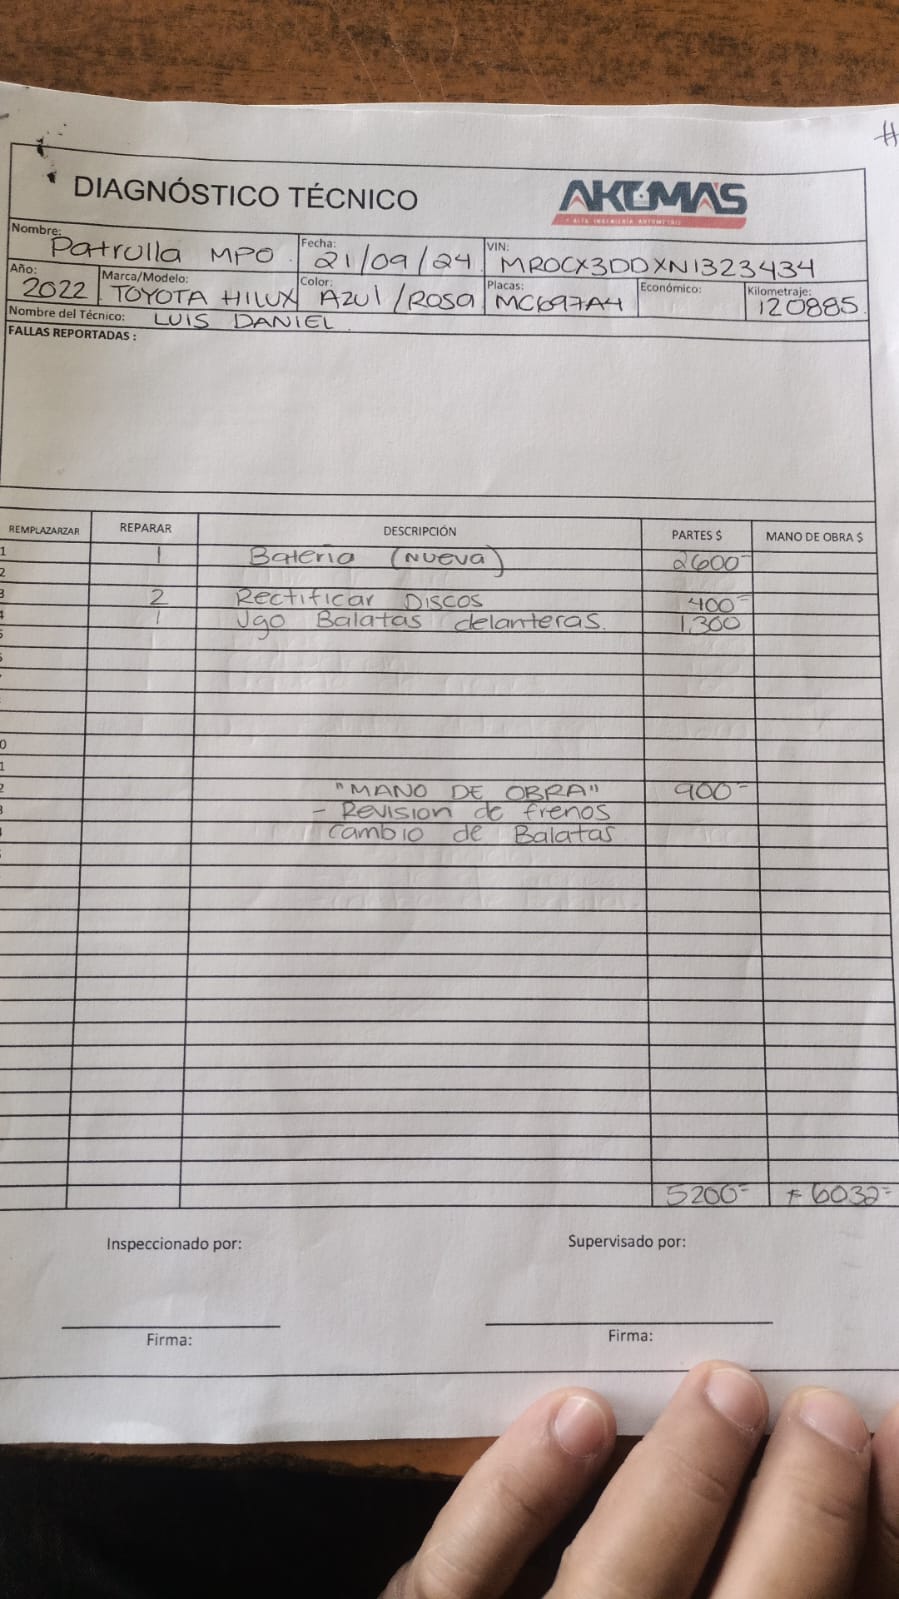 #
DIAGNÓSTICO TÉCNICO
AKEMA'S
ALTA INGENIERÍA AUTOMOTRIZ
Nombre: Patrulla MPO
Fecha: 21/09/24
VIN: MROCX3DDXN1323434
Año: 2022
Marca/Modelo: TOYOTA HILUX
Color: AZUl/ROSA
Placas: MC697A4
Económico:
Kilometraje: 120885
Nombre del Técnico: LUIS DANIEL
FALLAS REPORTADAS :
REMPLAZARZAR REPARAR DESCRIPCIÓN PARTES $ MANO DE OBRA $
1 1 Bateria (NUEVA) 2600-
2
3 2 Rectificar DISCOS 400-
4 1 Jgo Balatas delanteras. 1,300
"MANO DE OBRA" 900-
- Revision de frenos
Cambio de Balatas
5200- 6032-
Inspeccionado por: Supervisado por:
Firma: Firma: